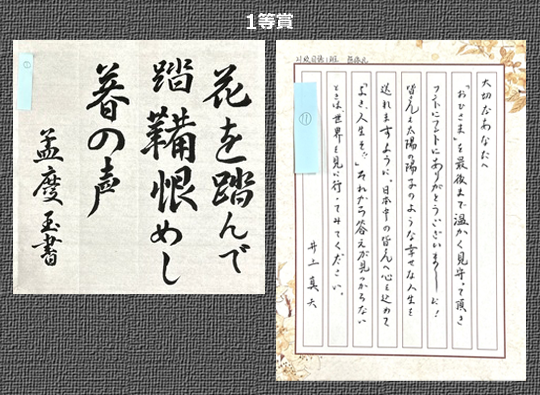 1等賞
花を踏んで
踏鞴恨めし
暮の声
孟慶玉書
⑪
大切なあなたへ
「おひさま」を最後まで温かく見守って頂き
ホントにホントにありがとうございました!
皆さんも太陽の陽子のような幸せな人生を
送れますように。日本中の皆さんへ心を込めて
「よき、人生を!!」それから答えが見つからない
ときは世界を見に行ってみてください。
井上真央